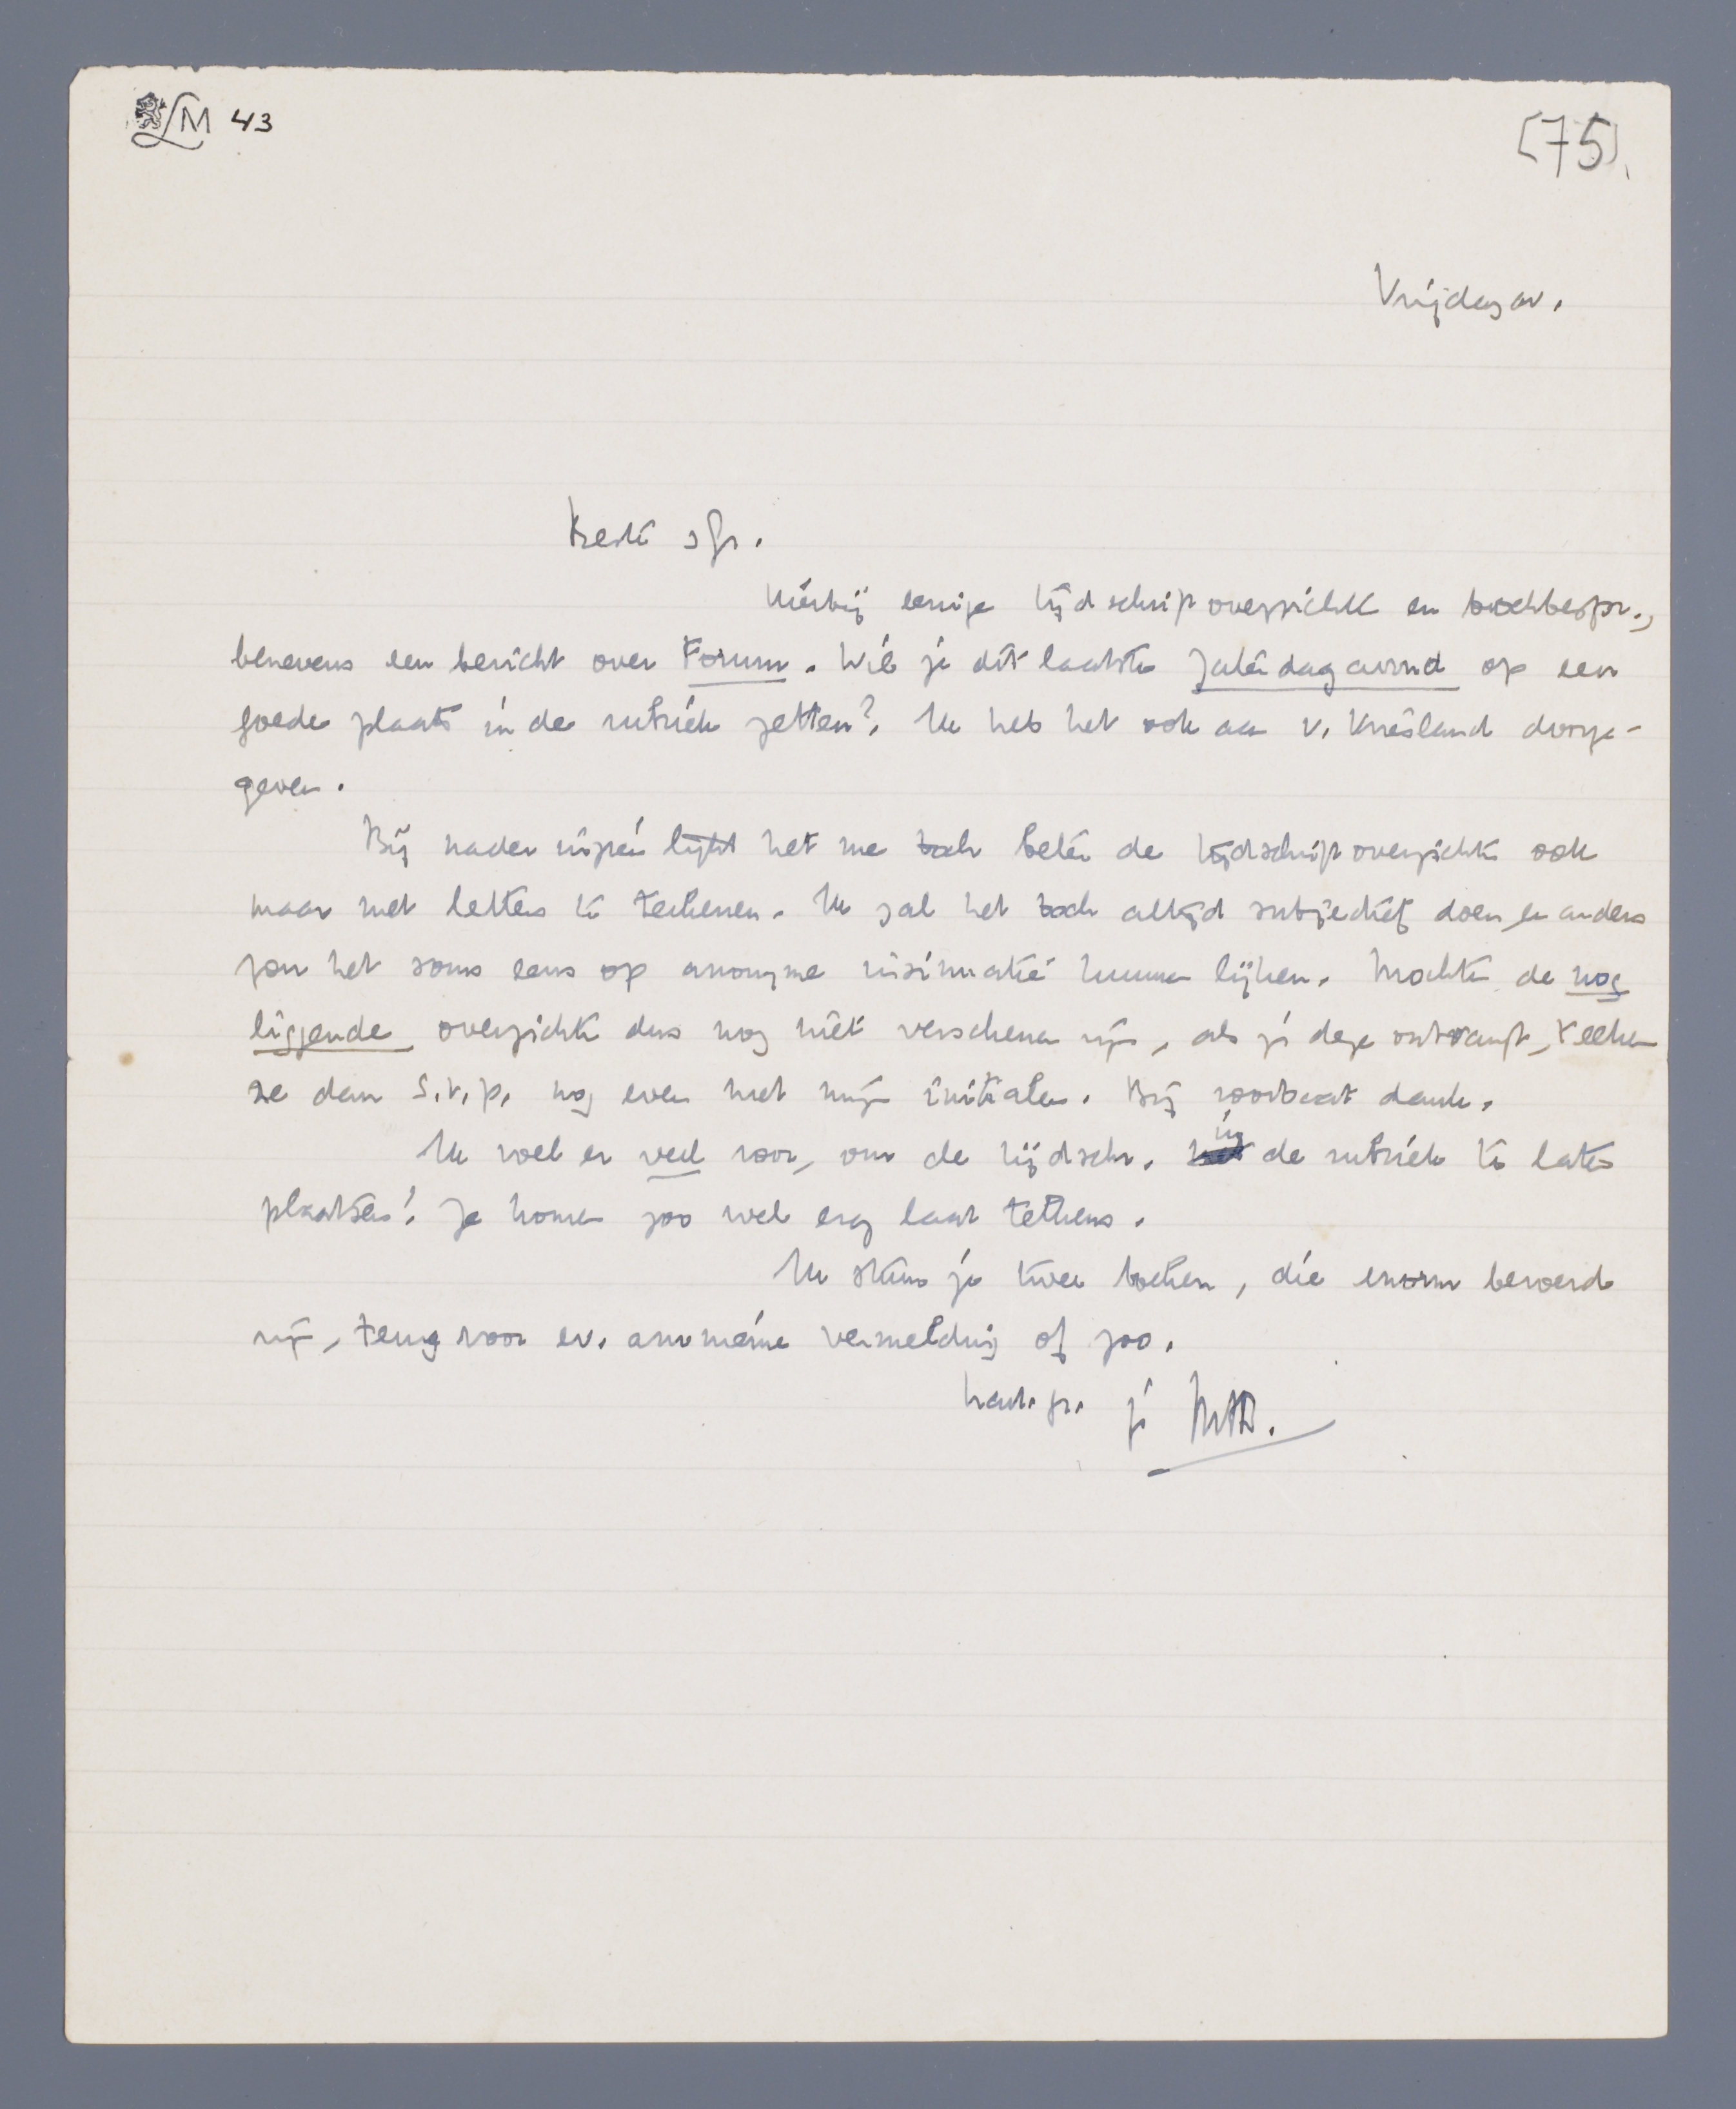 LM 43
[75].
Vrijdagav.
Beste sGr.
Hierbij eenige tijdschriftoverzichten en boekbespr.,
benevens een bericht over Forum. Wil je dit laatste Zaterdagavond op een
goede plaats in de rubriek zetten? Ik heb het ook aan v. Vriesland doorge-
geven.
Bij nader inzien lijkt het me toch beter de tijdschriftoverzichten ook
maar met letters te teekenen. Ik zal het toch altijd subjectief doen, en anders
zou het soms eens op anonyme insinuatie kunnen lijken. Mochten de nog
liggende overzichten dus nog niet verschenen zijn, als je deze ontvangt, teeken
ze dan s.v.p. nog even met mijn initialen. Bij voorbaat dank.
Ik voel er veel voor, om de tijdschr. in de rubriek te laten
plaatsen! Ze komen zoo wel erg laat telkens.
Ik stuur je twee boeken, die enorm beroerd
zijn, terug voor ev. anonieme vermelding of zoo.
hart. gr. je MtB.